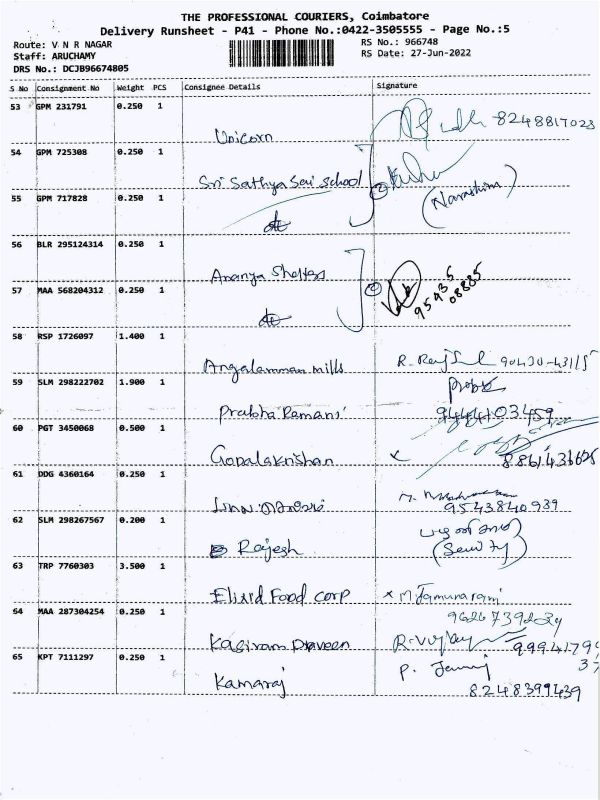 THE PROFESSIONAL COURIERS, Coimbatore
Delivery Runsheet - P41 - Phone No.:0422-3505555 - Page No.:5
Route: V N R NAGAR RS No.: 966748
Staff: ARUCHAMY RS Date: 27-Jun-2022
DRS No.: DCJB96674805
S No Consignment No Weight PCS Consignee Details Signature
53 GPM 231791 0.250 1
Unicorn 8248817023
54 GPM 725308 0.250 1
Sri Sathya Sai School
55 GPM 717828 0.250 1 (Narashima)
do
56 BLR 295124314 0.250 1
Ananya Shelters 95435
57 MAA 568204312 0.250 1 08885
do
58 RSP 1726097 1.400 1
Angalamman mills 90430-43115
59 SLM 298222702 1.900 1
Prabha Ramani 9444103459
60 PGT 3450068 0.500 1
Gopalakrishan
61 DDG 4360164 0.250 1
9543840939
62 SLM 298267567 0.200 1
Rajesh
63 TRP 7760303 3.500 1
Elixid Food corp x M Jamunarani
64 MAA 287304254 0.250 1
Kasiram Praveen R. Vijay
65 KPT 7111297 0.250 1
Kamaraj 8248399439